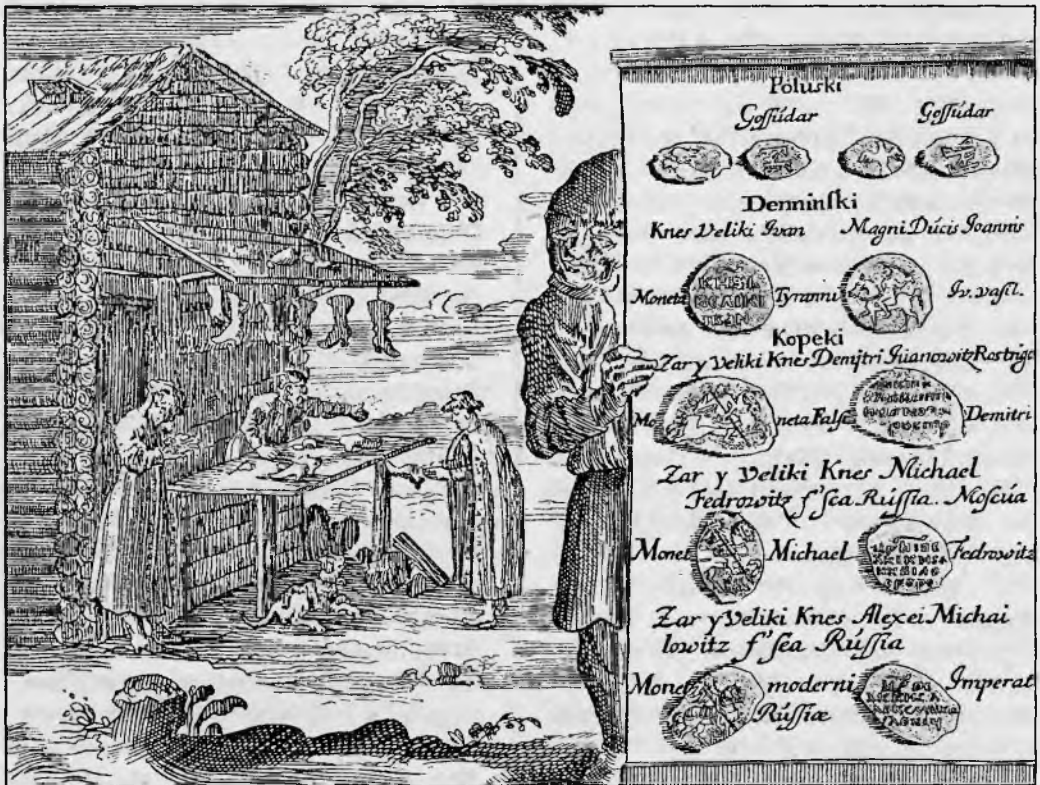 Poluski
Gossúdar Gossúdar
Denninski
Knes Veliki Ivan Magni Dúcis Joannis
Moneta Tyranni Iv. vasl.
КНЅІ
ВЕЛІКІ
ІВАN
Kopeki
Zar y Veliki Knes Demitri Iúanowitz Rostriga
Mo neta False Demitri
Zar y Veliki Knes Michael
Fedrowitz f'sea Rússia. Moscúa
Monet Michael Fedrowitz
Zar y Veliki Knes Alexei Michai
lowitz f'sea Rússia
Monet moderni Imperat
Rússiæ